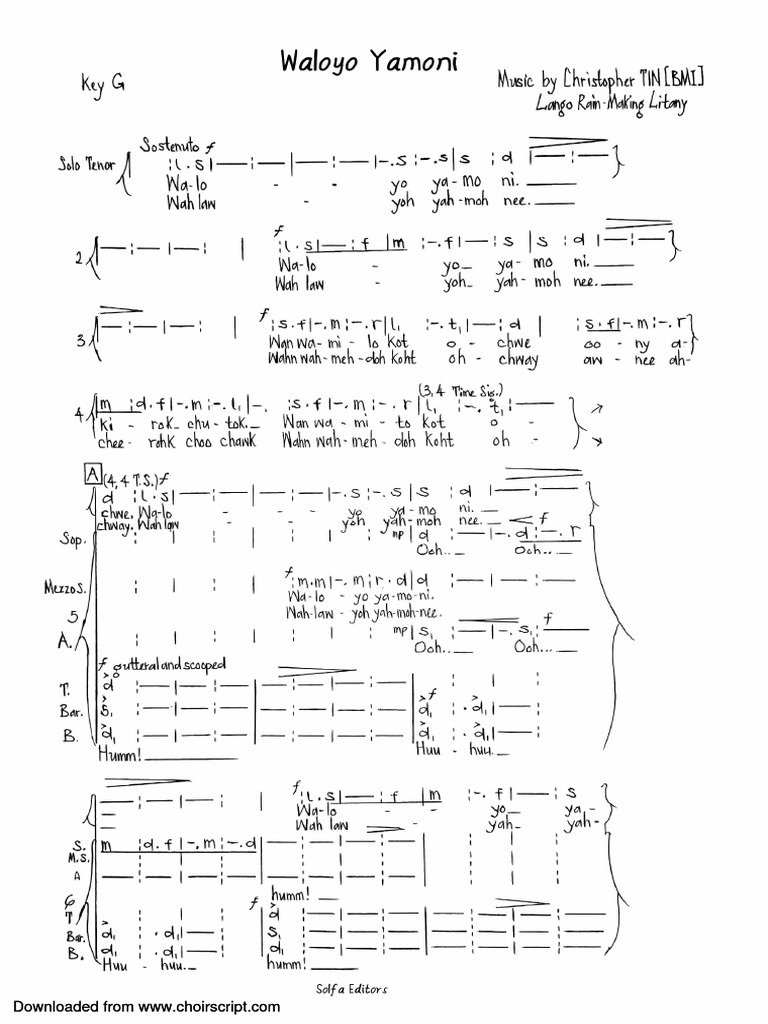 Waloyo Yamoni
Key G
Music by Christopher TIN [BMI]
Lango Rain-Making Litany
Sostenuto f
Solo Tenor :l.s|—:—|—:—|-.s:-.s|s:d|—:—
Wa-lo - - yo ya-mo ni.
Wah law yoh yah-moh nee.
f
2 |—:—|—: | :l.s|—:f|m:-.f|—:s|s:d|—:—
Wa-lo - yo_ ya- mo ni.
Wah law yoh_ yah-moh nee.
f
3 —:—|—: | :s.f|-.m:-.r|l,:-.t,|—:d| :s.f|-.m:-.r
Wan wa-mi-lo kot o - chwe oo-ny a-
Wahn wah-meh-doh koht oh - chway aw-nee ah-
(3,4 Time Sis.)
4 m:d.f|-.m:-.l,|-. :s.f|-.m:-.r|l,:-.t,:—
ki - rok_ chu-tok._ Wan wa-mi-to kot o -
chee - rohk choo chawk Wahn wah-meh-doh koht oh -
A (4,4 T.S.) f
d:l.s|—:—|—:—|-.s:-.s|s:d|—:—
chwe. Wa-lo - - yo ya-mo ni.
chway. Wah law yoh yah-moh nee. f
Sop. : | : | : | : mp|d:—|-.d:-.r
Ooh.._ Ooh.._
f
Mezzo S. : | : | :m.m|-.m:r.d|d:—|—:—
Wa-lo - yo ya-mo-ni.
Wah-law - yoh yah-moh-nee.
5
f
A. : | : | : | : mp|s,:—|-.s,:—
Ooh.._ Ooh.._
f gutteral and scooped
T. d:—|—:—|—:—|—:—| : | :
f
Bar. s,:—|—:—|—:—|—:—|d,:.d,|—:—
B. d,:—|—:—|—:—|—:—|d,:.d,|—:—
Humm! Huu - huu._
f
—:—|—:—| :l.s|—:f|m:-.f|—:s
Wa-lo - - yo_ ya-
Wah law - yah_ yah-
S. m:d.f|-.m:-.d|—:—|—:—| : | :
M.S.
A —:—|—:—|—:—|—:—| : | :
humm!
6
f
T : | : |d:—|—:—|—:—|—:—
Bar. d,:.d,|—:—|s,:—|—:—|—:—|—:—
B. d,:.d,|—:—|d,:—|—:—|—:—|—:—
Huu - huu._ humm!
Solfa Editors
Downloaded from www.choirscript.com